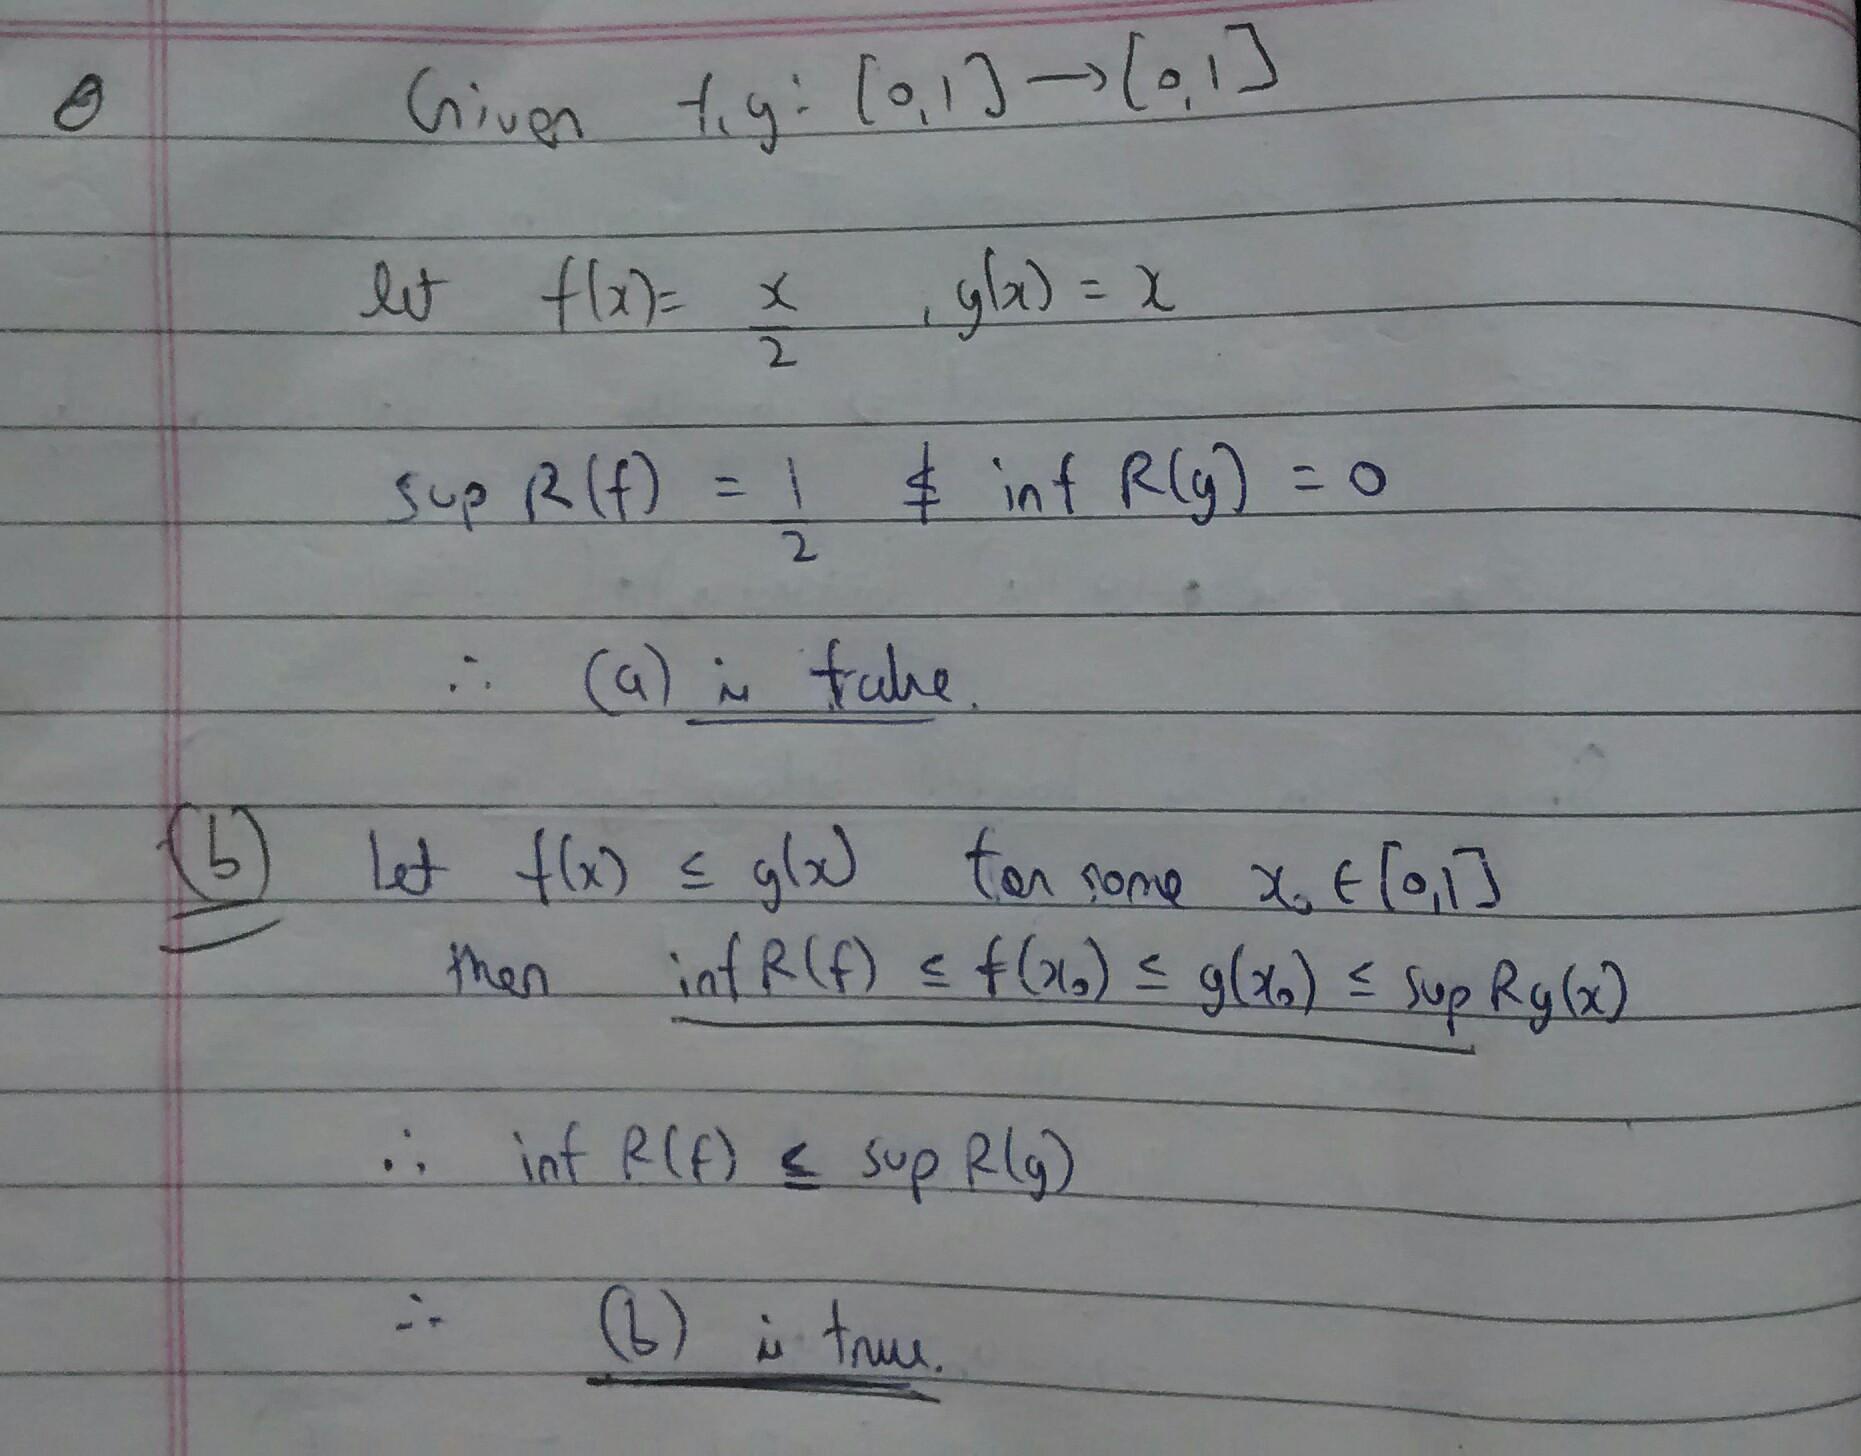 Q Given f,g: [0,1] → [0,1]
let f(x) = x/2 , g(x) = x
sup R(f) = 1/2 ≰ inf R(g) = 0
∴ (a) is false.
(b) Let f(x) ≤ g(x) for some x₀ ∈ [0,1]
then inf R(f) ≤ f(x₀) ≤ g(x₀) ≤ sup Rg(x)
∴ inf R(f) ≤ sup R(g)
∴ (b) is true.